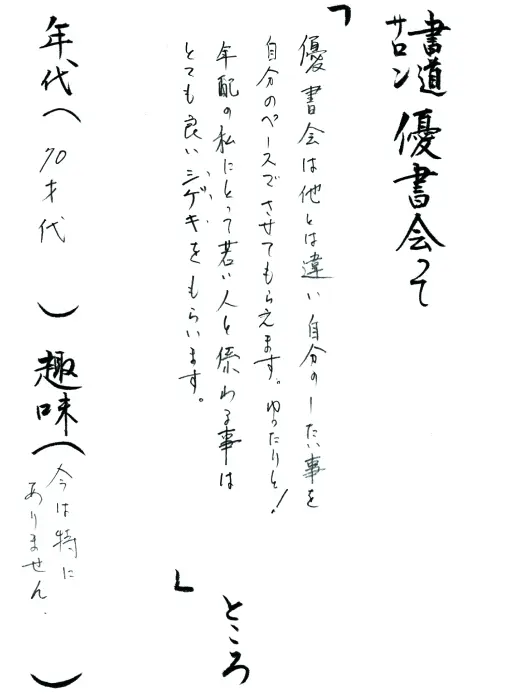 書道サロン 優書会って
「
優書会は他とは違い自分のしたい事を
自分のペースでさせてもらえます。ゆったりと!
年配の私にとって若い人と係わる事は
とても良いシゲキをもらいます。
」ところ
年代( 70才代 ) 趣味(今は特にありません.)